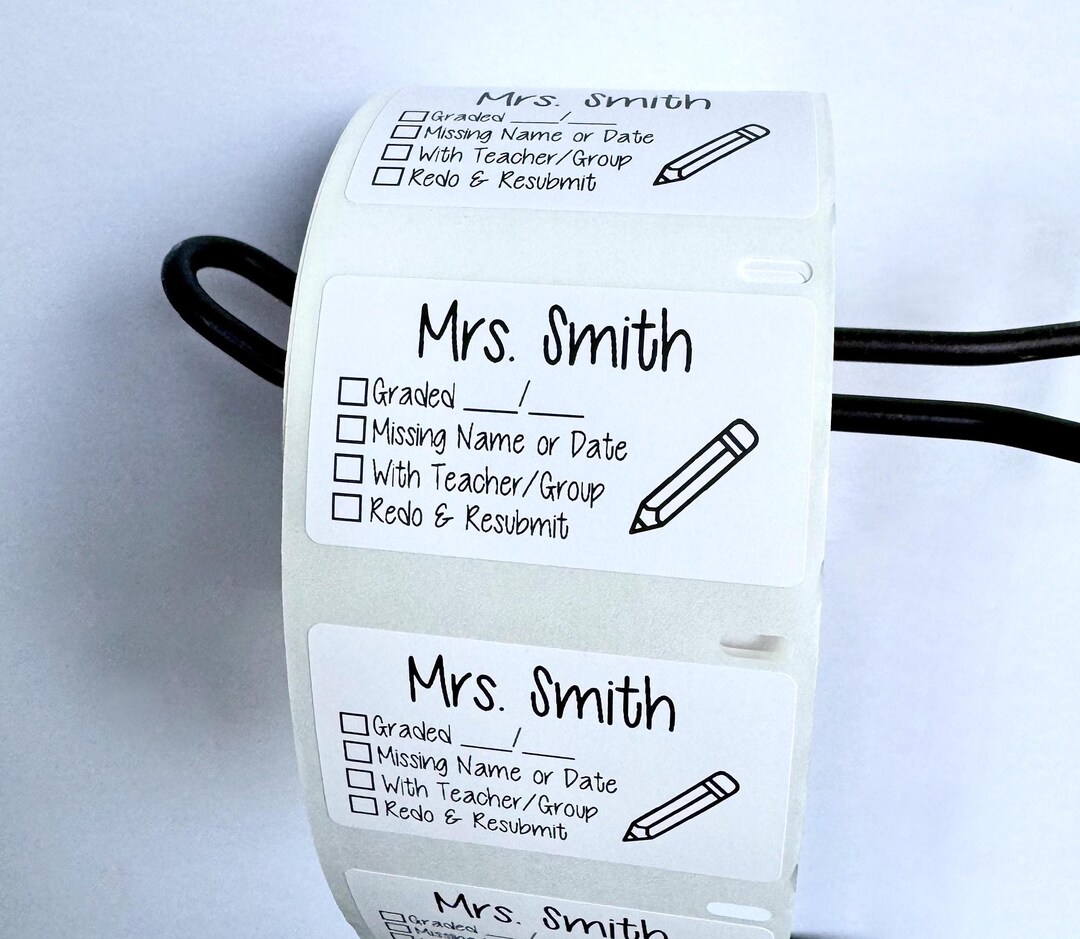 Mrs. Smith
Graded ___/___
Missing Name or Date
With Teacher/Group
Redo & Resubmit
Mrs. Smith
Graded ___/___
Missing Name or Date
With Teacher/Group
Redo & Resubmit
Mrs. Smith
Graded ___/___
Missing Name or Date
With Teacher/Group
Redo & Resubmit
Mrs. Smith
Graded ___/
Missing